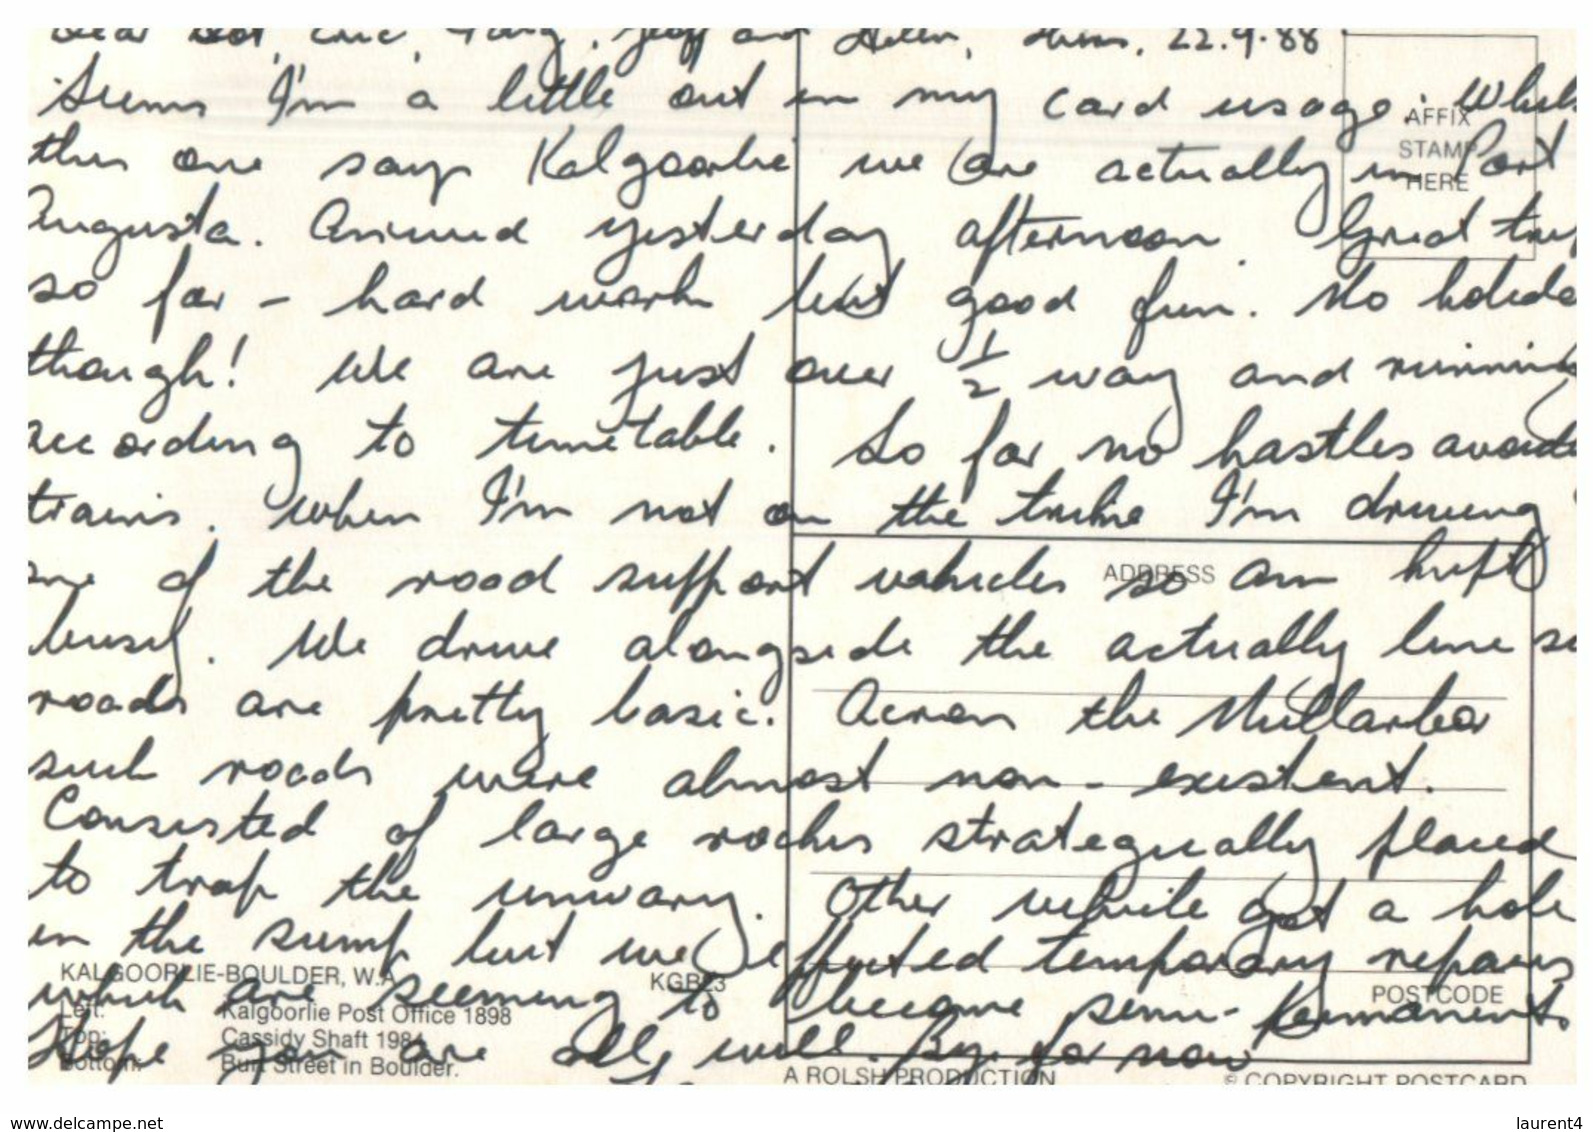 Dear Dot, Eric, , Geoff and Helen, Thurs. 22.9.88
Seems I'm a little out in my card usage. Whils
this one says Kalgoorlie we are actually in Port
Augusta. Arrived yesterday afternoon. Great trip
so far - hard work but good fun. No holida
though! We are just over ½ way and running
according to timetable. So far no hastles avoidi
trains. When I'm not on the trike I'm driving
one of the road support vehicles so am kept
busy. We drive alongside the actually line so
roads are pretty basic. Across the Nullarbor
such roads were almost non-existent.
Consisted of large rocks strategically placed
to trap the unwary. Other vehicle got a hole
in the sump but we effected temporary repairs
which are seeming to become semi-permanent.
Hope you are all well. By for now
AFFIX
STAMP
HERE
ADDRESS
POSTCODE
KALGOORLIE-BOULDER, W.A.
KGB23
Left: Kalgoorlie Post Office 1898
Top: Cassidy Shaft 1984
Bottom: Burt Street in Boulder.
A ROLSH PRODUCTION
© COPYRIGHT POSTCARD
www.delcampe.net
laurent4